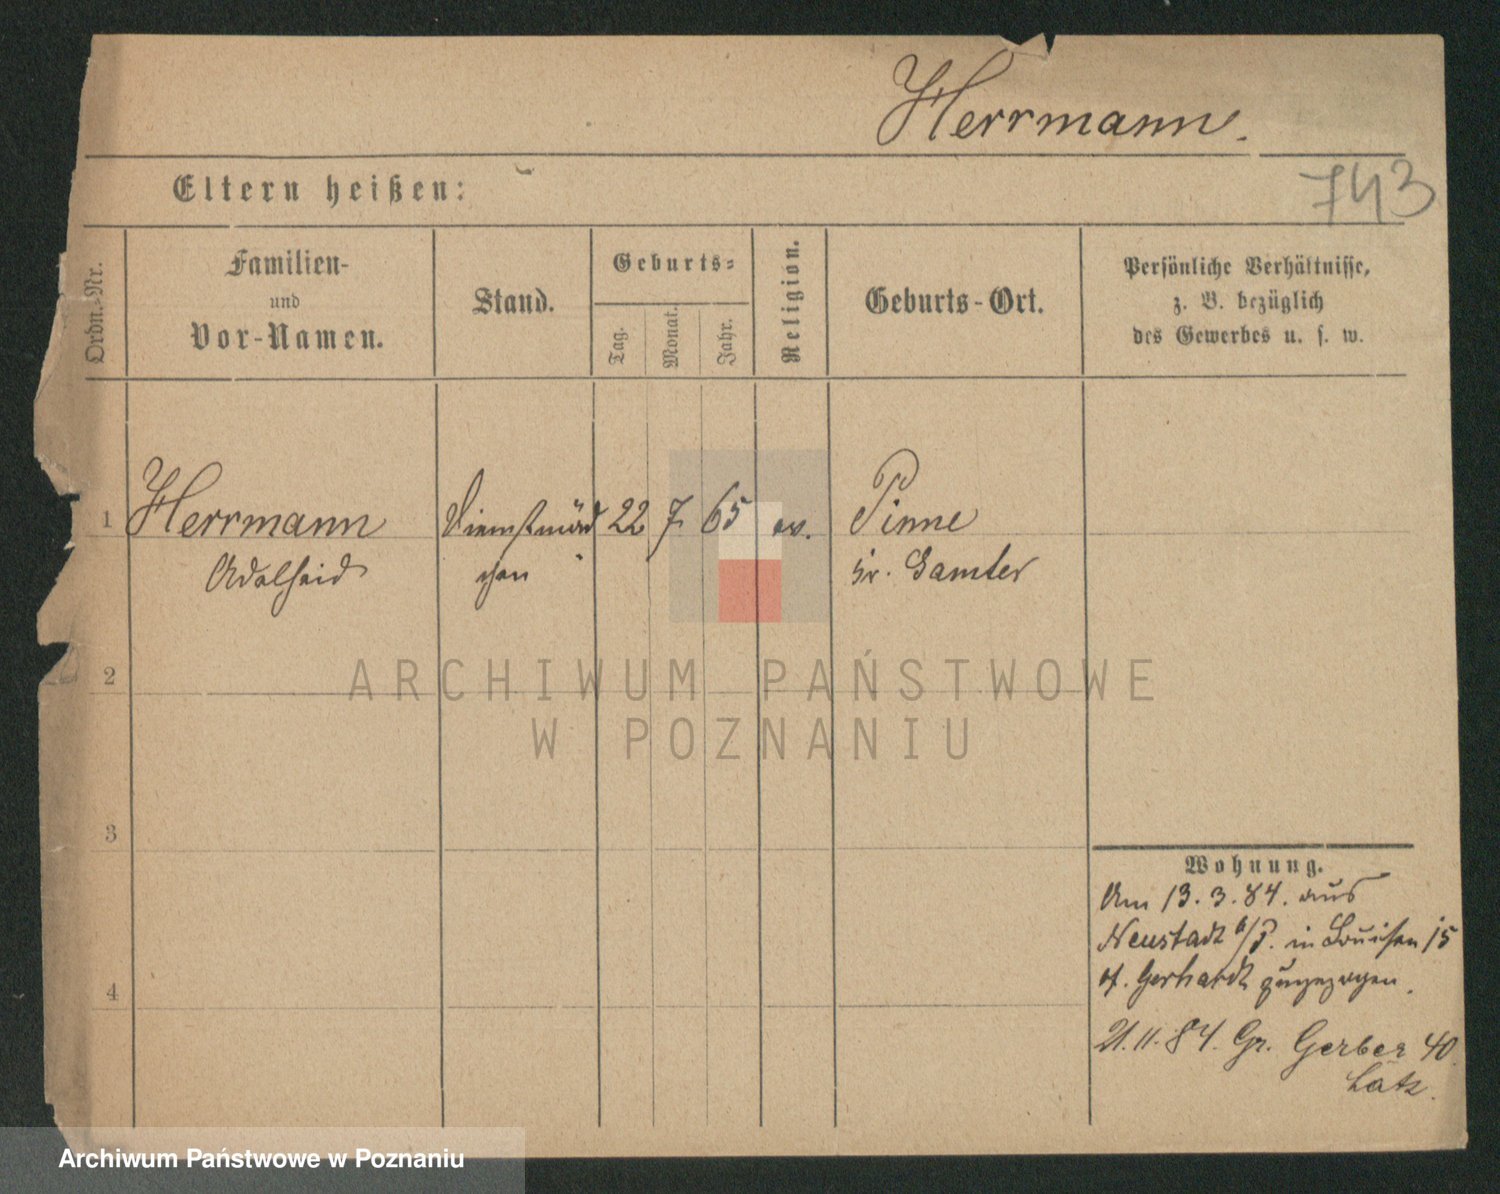 Herrmann.
743
Eltern heißen:
Ordn.-Nr.
Familien-
und
Vor-Namen.
Stand.
Geburts-
Tag.
Monat.
Jahr.
Religion.
Geburts-Ort.
Persönliche Verhältnisse,
z. B. bezüglich
des Gewerbes u. s. w.
1 Herrmann Dienstmäd 22 7. 65 ev. Pinne
Adelheid chen Kr. Samter
2
3
4
Wohnung.
Am 13.3.84. aus
Neustadt b/P. in Louisen 15
b. Gerhardt zugezogen.
21.11.84. Gr. Gerber 40
ARCHIWUM PAŃSTWOWE
W POZNANIU
Archiwum Państwowe w Poznaniu